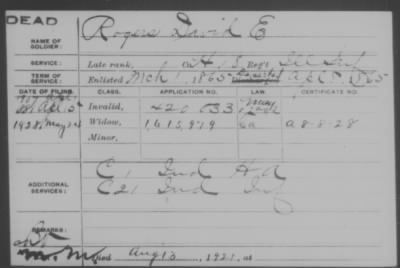 DEAD
NAME OF SOLDIER: Rogers David E
SERVICE: Late rank, Co. H, 8 Reg't Ill Inf
TERM OF SERVICE: Enlisted Mch 1, 1865 Apl 5, 1865
DATE OF FILING. CLASS. APPLICATION NO. LAW. CERTIFICATE NO.
Invalid, 420 033
1928, May 24 Widow, 1,615,979 A 8-8-28
Minor,
ADDITIONAL SERVICES:
C, Ind H A
C 21 Ind Inf
REMARKS:
died Aug 13, 1921, at